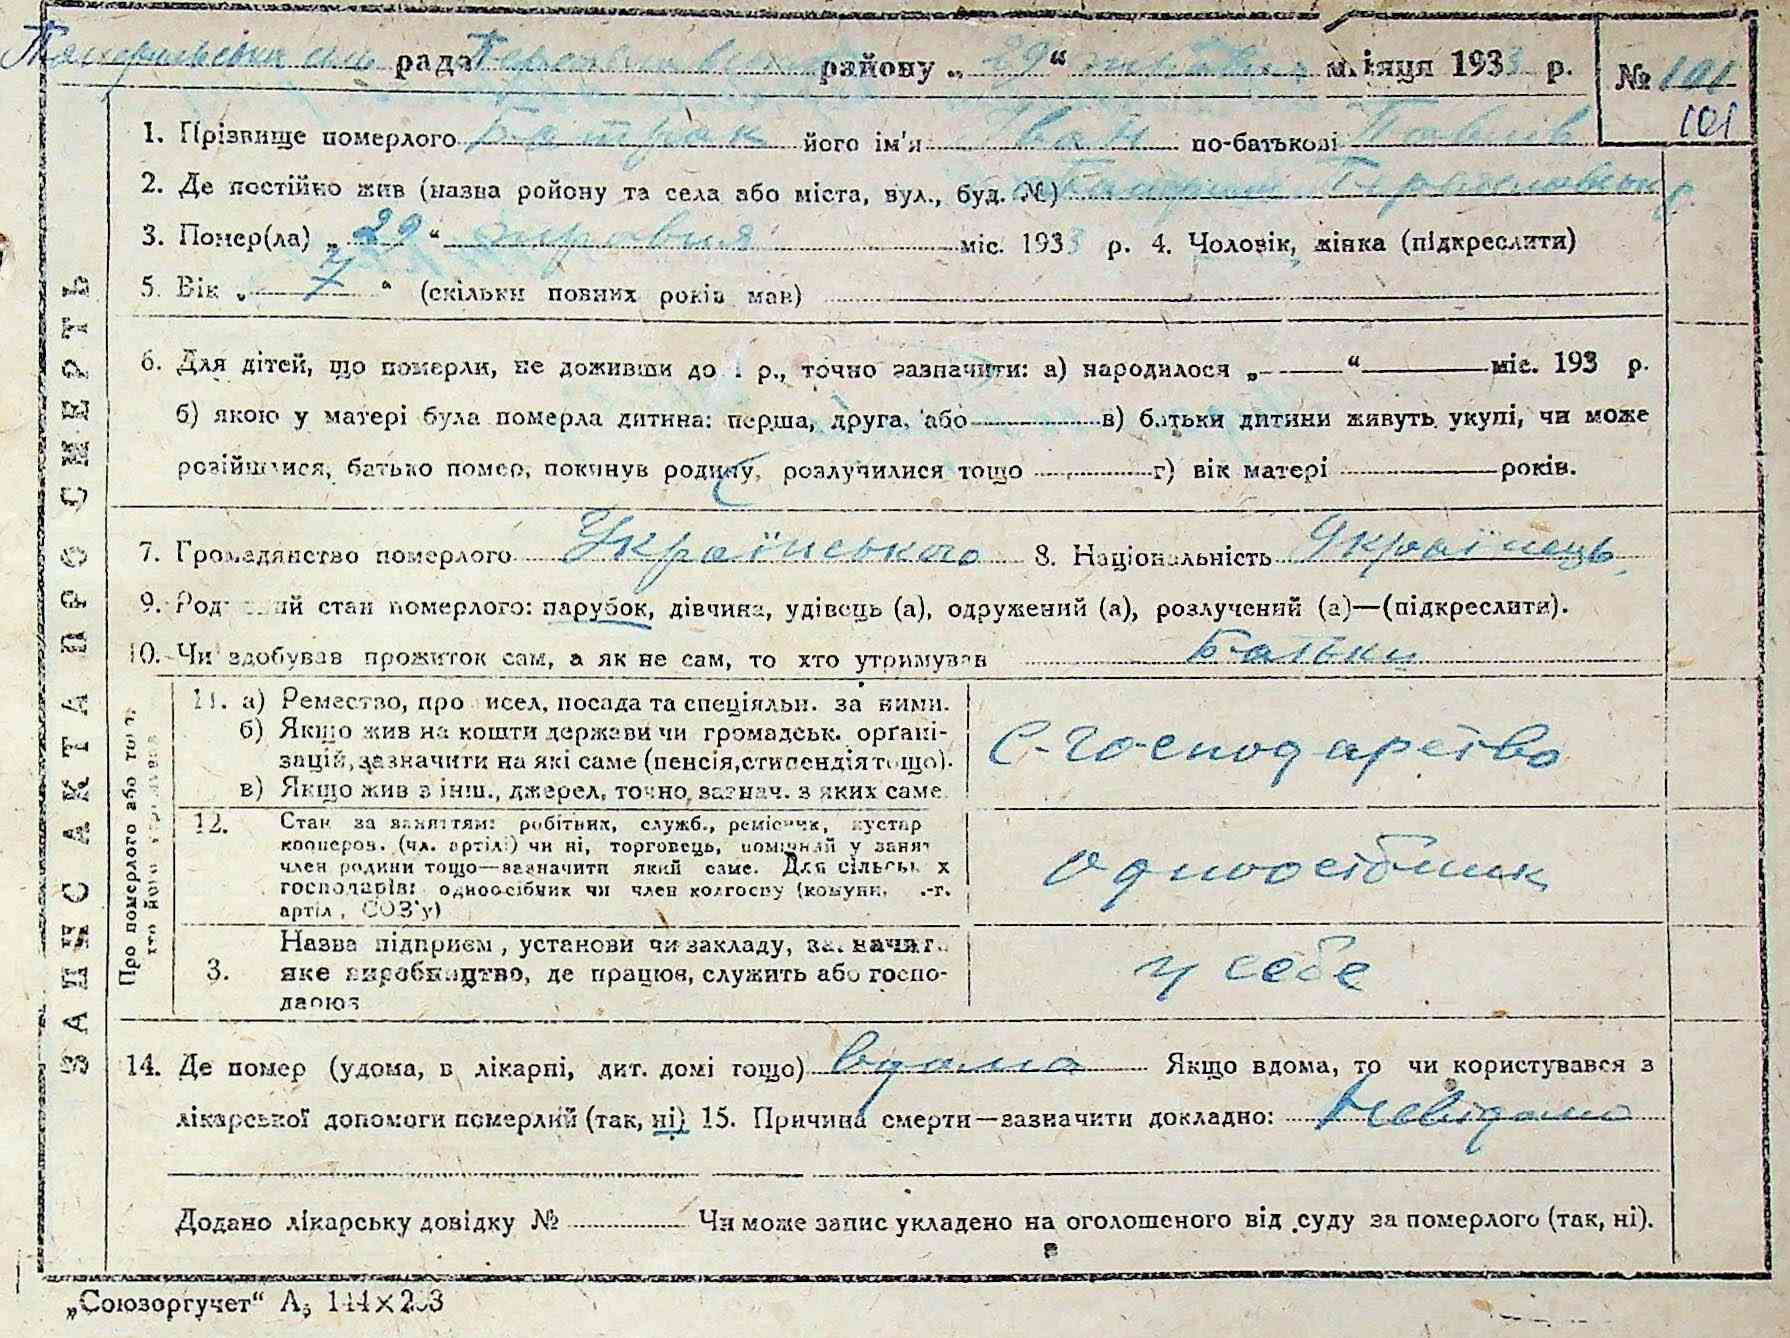 рада району „ 29 “ травня місяця 1933 р. № 101
101
1. Прізвище померлого Батрак його ім'я Іван по-батькові Павлів
2. Де постійно жив (назва ройону та села або міста, вул., буд. №)
3. Помер(ла) „ 29 “ травня міс. 1933 р. 4. Чоловік, жінка (підкреслити)
5. Вік „ 7 “ (скільки повних років мав)
6. Для дітей, що померли, не доживши до 1 р., точно зазначити: а) народилося „ “ міс. 193 р.
б) якою у матері була померла дитина: перша, друга, або в) батьки дитини живуть укупі, чи може
розійшлися, батько помер, покинув родину, розлучилися тощо г) вік матері років.
7. Громадянство померлого Українського 8. Національність Українець
9. Родинний стан померлого: парубок, дівчина, удівець (а), одружений (а), розлучений (а)—(підкреслити).
10. Чи здобував прожиток сам, а як не сам, то хто утримував Батьки
ЗАПИС АКТА ПРО СМЕРТЬ
Про померлого або того,
хто його утримував
11. а) Ремество, промисел, посада та спеціяльн. за ними.
б) Якщо жив на кошти держави чи громадськ. органі-
зацій, зазначити на які саме (пенсія, стипендія тощо).
в) Якщо жив з інш., джерел, точно, зазнач. з яких саме
С-господарство
12. Стан за заняттям: робітник, служб., ремісник, кустар
кооперов. (чл. артілі) чи ні, торговець, помічний у занят
член родини тощо—зазначити який саме. Для сільських
господарів: одноосібник чи член колгоспу (комуни, с.-г.
артіл, СОЗ'у)
одноосібник
Назва підприєм, установи чи закладу, зазначити
3. яке виробництво, де працює, служить або госпо-
дарює
у себе
14. Де помер (удома, в лікарні, дит. домі тощо) вдома Якщо вдома, то чи користувався з
лікарської допомоги померлий (так, ні) 15. Причина смерти—зазначити докладно: Невідомо
Додано лікарську довідку № Чи може запис укладено на оголошеного від суду за померлого (так, ні).
„Союзоргучет“ А5 144×203